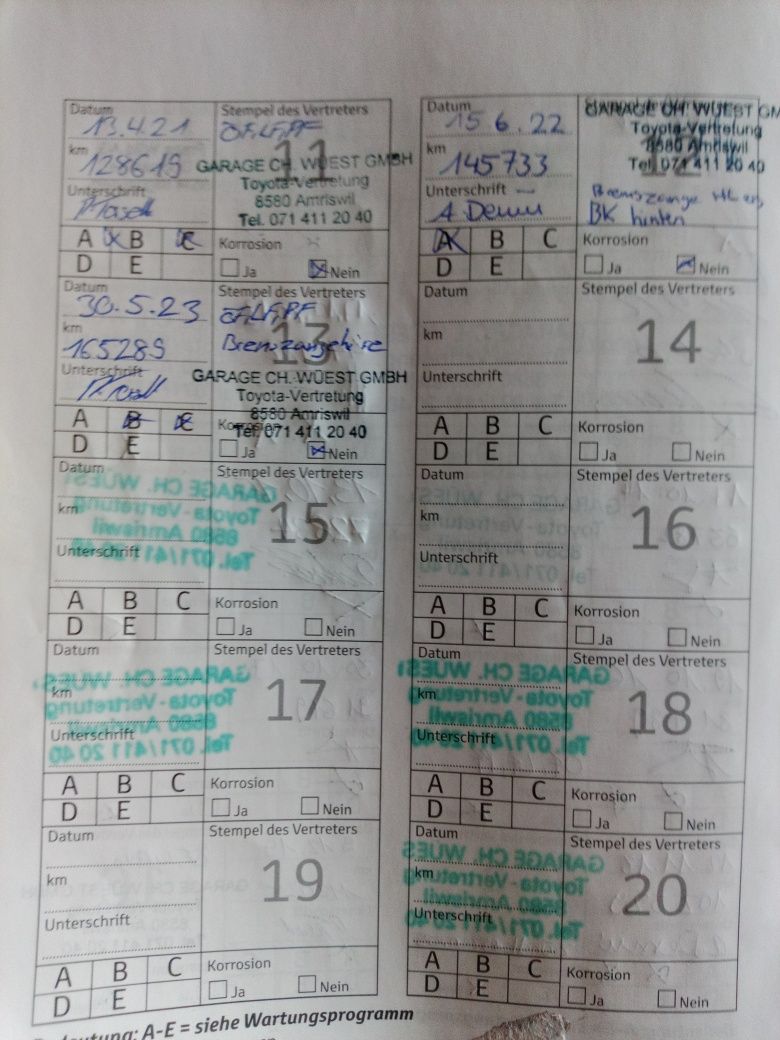 Datum
13.4.21
km
128619
Unterschrift
Stempel des Vertreters
ÖF,LF,PF
11
GARAGE CH. WÜEST GMBH
Toyota-Vertretung
8580 Amriswil
Tel. 071 411 20 40
A B C
D E
Korrosion
Ja Nein
Datum
15.6.22
km
145733
Unterschrift
Stempel des Vertreters
12
GARAGE CH. WÜEST GM
Toyota-Vertretung
8580 Amriswil
Tel. 071 411 20 40
BK hinten
A B C
D E
Korrosion
Ja Nein
Datum
30.5.23
km
165289
Unterschrift
Stempel des Vertreters
ÖF,LF,PF
13
GARAGE CH. WÜEST GMBH
Toyota-Vertretung
8580 Amriswil
Tel. 071 411 20 40
A B C
D E
Korrosion
Ja Nein
Datum
km
Unterschrift
Stempel des Vertreters
14
A B C
D E
Korrosion
Ja Nein
Datum
km
Unterschrift
Stempel des Vertreters
15
A B C
D E
Korrosion
Ja Nein
Datum
km
Unterschrift
Stempel des Vertreters
16
A B C
D E
Korrosion
Ja Nein
Datum
km
Unterschrift
Stempel des Vertreters
17
A B C
D E
Korrosion
Ja Nein
Datum
km
Unterschrift
Stempel des Vertreters
18
A B C
D E
Korrosion
Ja Nein
Datum
km
Unterschrift
Stempel des Vertreters
19
A B C
D E
Korrosion
Ja Nein
Datum
km
Unterschrift
Stempel des Vertreters
20
A B C
D E
Korrosion
Ja Nein
A-E = siehe Wartungsprogramm